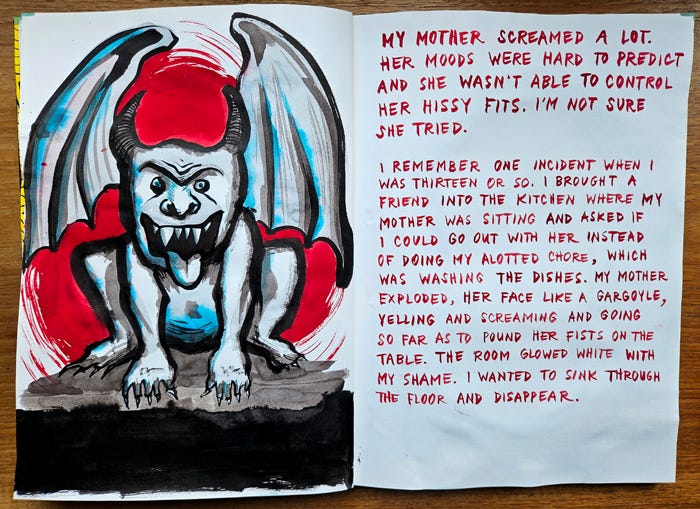 MY MOTHER SCREAMED A LOT.
HER MOODS WERE HARD TO PREDICT
AND SHE WASN'T ABLE TO CONTROL
HER HISSY FITS. I'M NOT SURE
SHE TRIED.
I REMEMBER ONE INCIDENT WHEN I
WAS THIRTEEN OR SO. I BROUGHT A
FRIEND INTO THE KITCHEN WHERE MY
MOTHER WAS SITTING AND ASKED IF
I COULD GO OUT WITH HER INSTEAD
OF DOING MY ALOTTED CHORE, WHICH
WAS WASHING THE DISHES. MY MOTHER
EXPLODED, HER FACE LIKE A GARGOYLE,
YELLING AND SCREAMING AND GOING
SO FAR AS TO POUND HER FISTS ON THE
TABLE. THE ROOM GLOWED WHITE WITH
MY SHAME. I WANTED TO SINK THROUGH
THE FLOOR AND DISAPPEAR.